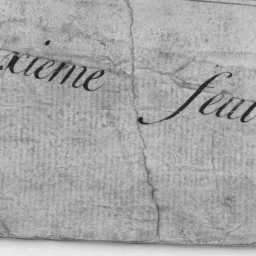 xieme feui